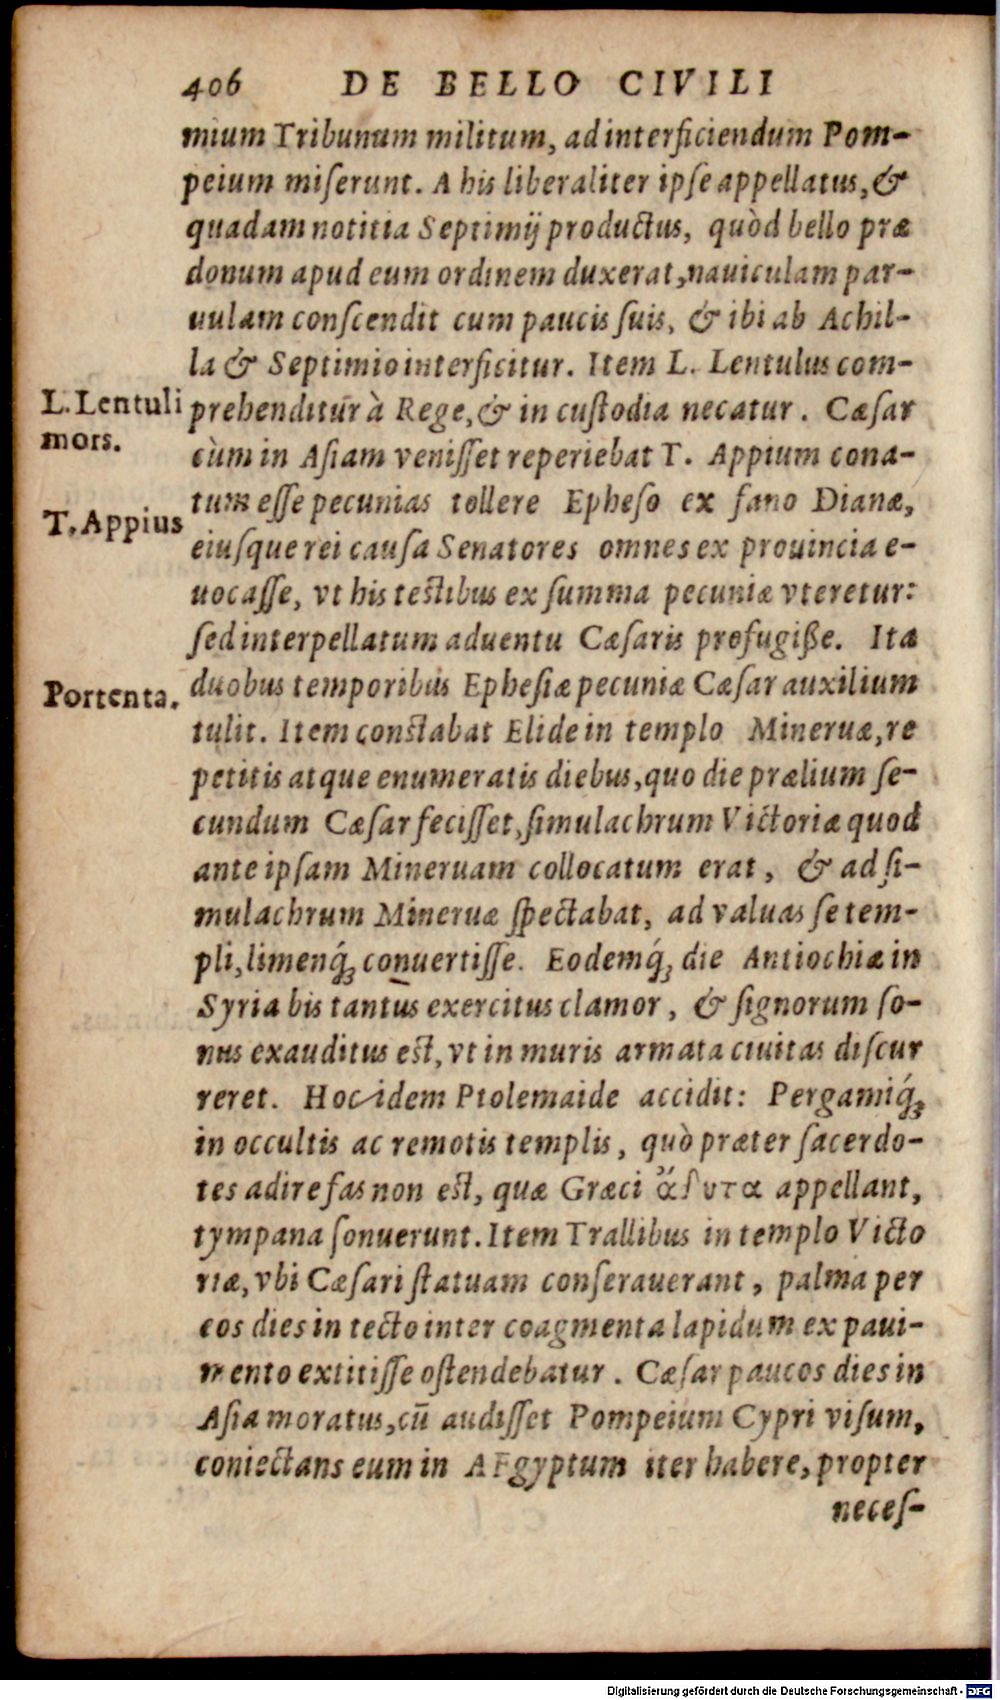 406 DE BELLO CIVILI
mium Tribunum militum, ad interficiendum Pom-
peium miſerunt. A his liberaliter ipſe appellatus, &
quadam notitia Septimij productus, quòd bello præ
donum apud eum ordinem duxerat, nauiculam par-
uulam conſcendit cum paucis ſuis, & ibi ab Achil-
la & Septimio interficitur. Item L. Lentulus com-
L. Lentuli
mors.
prehenditur à Rege, & in cuſtodia necatur. Cæſar
cùm in Aſiam veniſſet reperiebat T. Appium cona-
T. Appius
tum eſſe pecunias tollere Epheſo ex fano Dianæ,
eiuſque rei cauſa Senatores omnes ex prouincia e-
uocaſſe, vt his teſtibus ex ſumma pecuniæ vteretur:
ſed interpellatum aduentu Cæſaris profugiße. Ita
Portenta.
duobus temporibus Epheſiæ pecuniæ Cæſar auxilium
tulit. Item conſtabat Elide in templo Mineruæ, re
petitis atque enumeratis diebus, quo die prælium ſe-
cundum Cæſar feciſſet, ſimulachrum Victoriæ quod
ante ipſam Mineruam collocatum erat, & ad ſi-
mulachrum Mineruæ ſpectabat, ad valuas ſe tem-
pli, limenq́ꝫ conuertiſſe. Eodemq́ꝫ die Antiochiæ in
Syria bis tantus exercitus clamor, & ſignorum ſo-
nus exauditus eſt, vt in muris armata ciuitas diſcur
reret. Hoc idem Ptolemaide accidit: Pergamiq́ꝫ
in occultis ac remotis templis, quò præter ſacerdo-
tes adire fas non eſt, quæ Græci ἄδυτα appellant,
tympana ſonuerunt. Item Trallibus in templo Victo
riæ, vbi Cæſari ſtatuam conſerauerant, palma per
eos dies in tecto inter coagmenta lapidum ex paui-
mento extitiſſe oſtendebatur. Cæſar paucos dies in
Aſia moratus, cū audiſſet Pompeium Cypri viſum,
coniectans eum in AEgyptum iter habere, propter
neceſ-
Digitalisierung gefördert durch die Deutsche Forschungsgemeinschaft - DFG